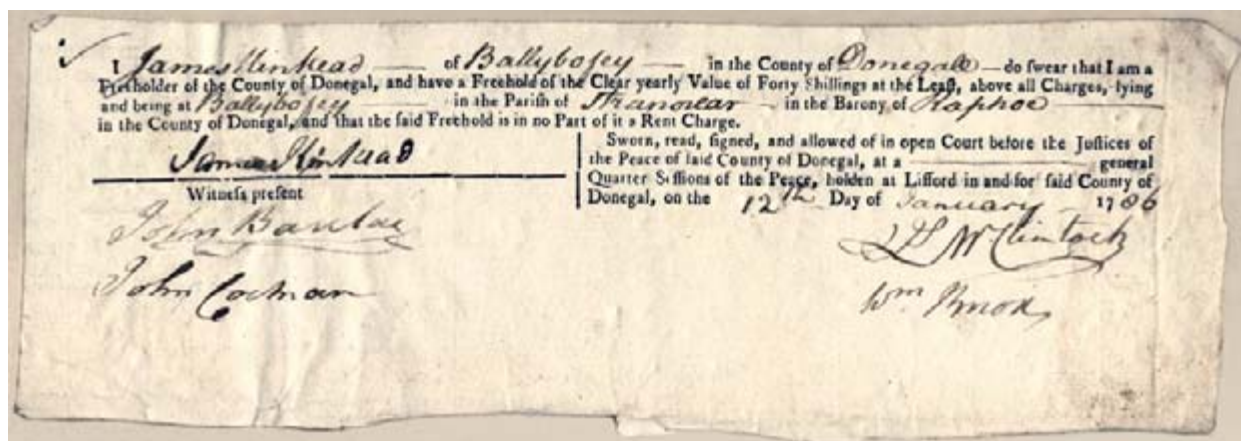 I James Kinkead — of Ballybofey — in the County of Donegall — do swear that I am a
Freeholder of the County of Donegal, and have a Freehold of the Clear yearly Value of Forty Shillings at the Leaſt, above all Charges, lying
and being at Ballybofey — in the Pariſh of Stranorlar — in the Barony of Raphoe —
in the County of Donegal, and that the ſaid Freehold is in no Part of it a Rent Charge.
James Kinkead
Witneſs preſent
John Barclay
John Cochran
Sworn, read, ſigned, and allowed of in open Court before the Juſtices of
the Peace of ſaid County of Donegal, at a — general
Quarter Seſſions of the Peace, holden at Lifford in and for ſaid County of
Donegal, on the 12th Day of January — 1786
McClintock
Wm Knox